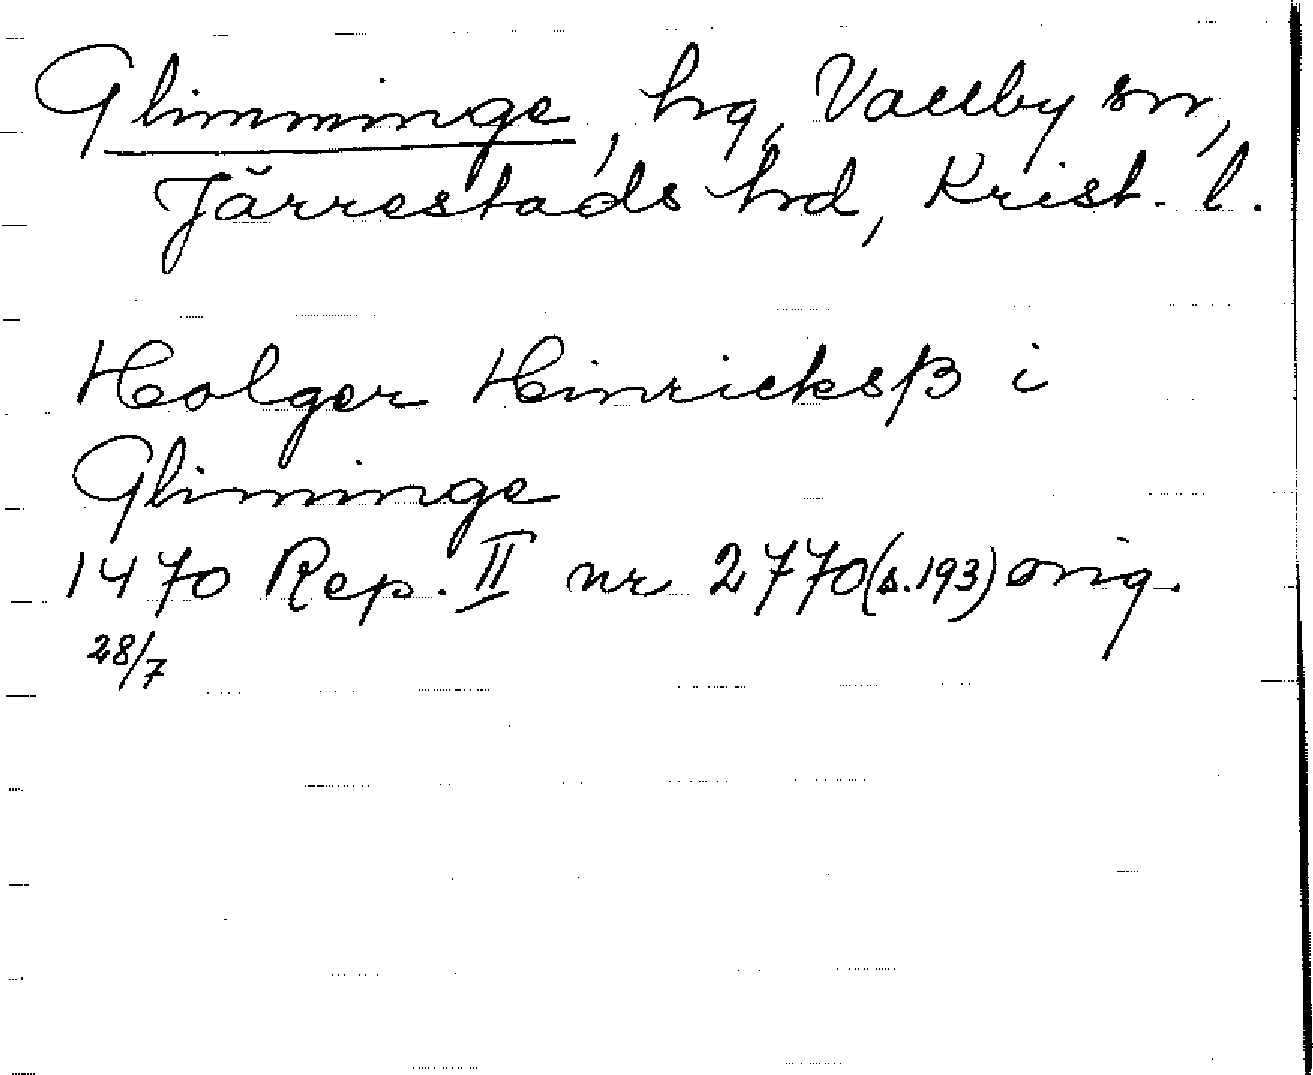 Glimminge, hg, Vallby sn,
Järrestads hd, Krist. l.
Holger Hinricksß i
Gliminge
1470 Rep. II nr 2770(s.193) orig.
28/7